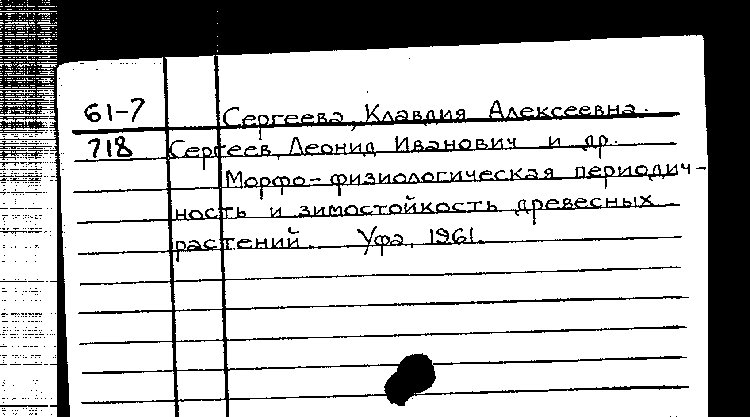 61-7 Сергеева, Клавдия Алексеевна.
718 Сергеев, Леонид Иванович и др.
Морфо-физиологическая периодич-
ность и зимостойкость древесных
растений. Уфа, 1961.